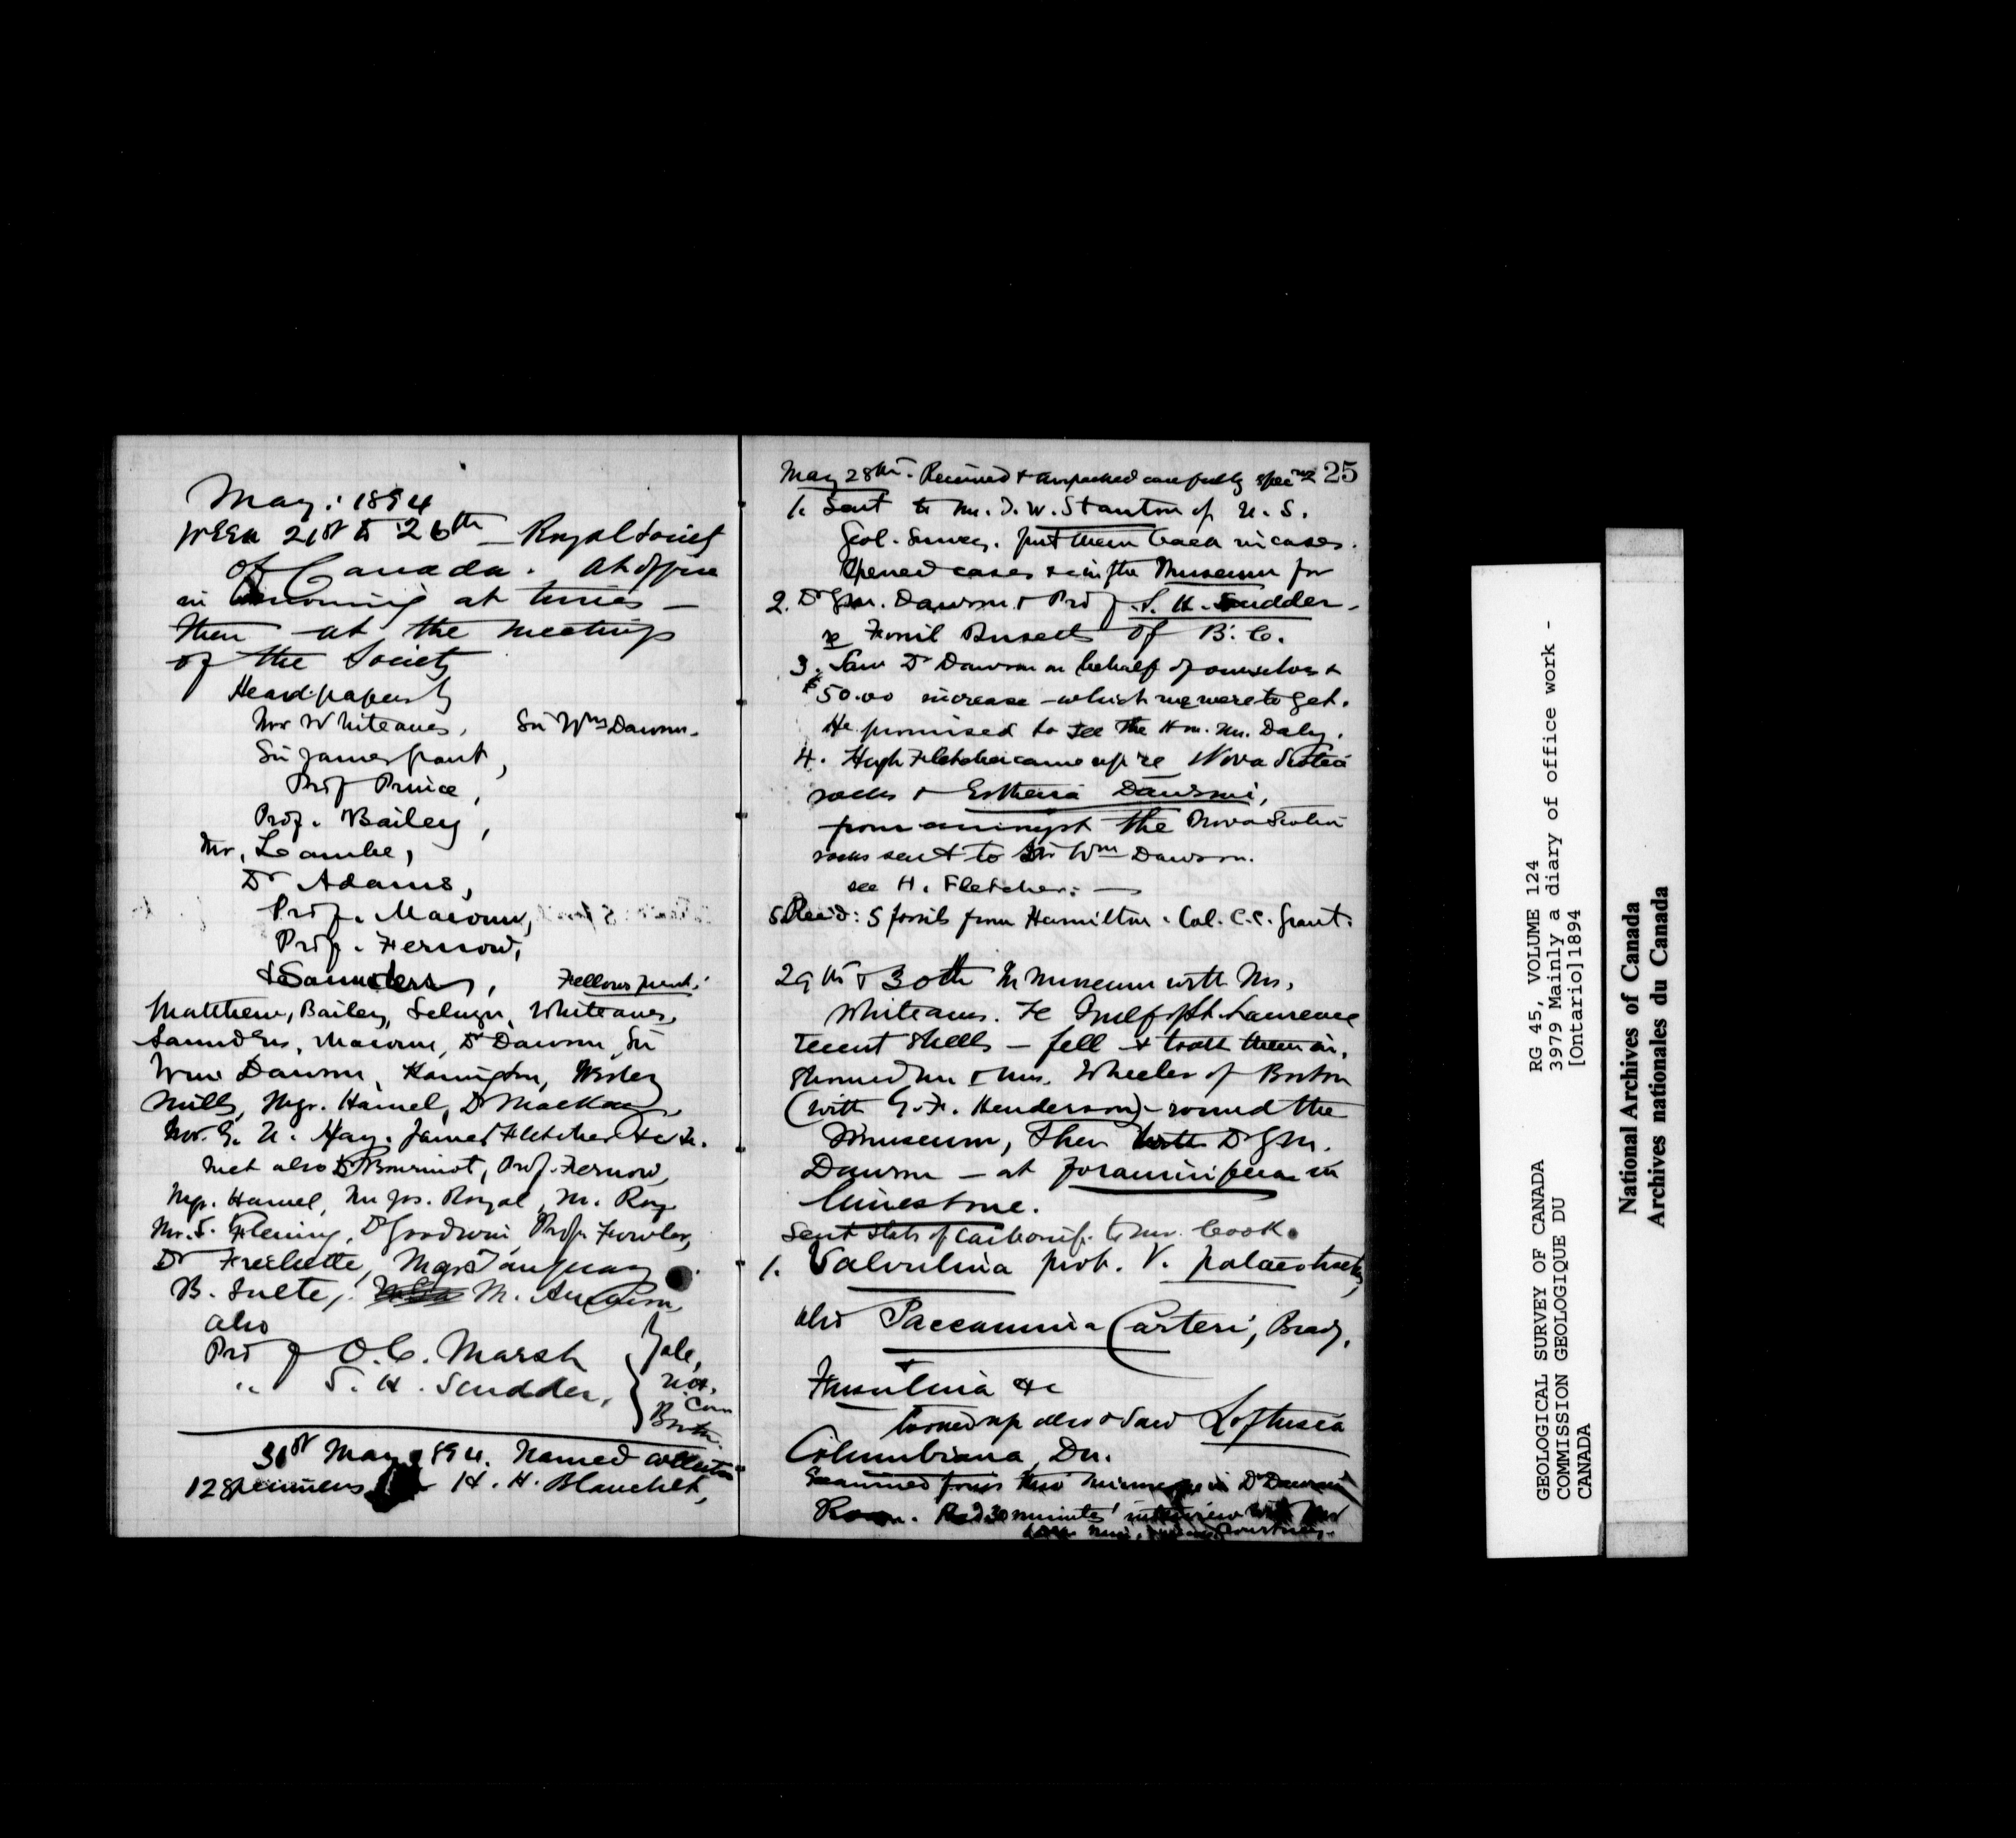 May: 1894
Week 21st to 26th - Royal Society
of Canada. At office
in morning at times -
then at the meetings
of the Society
Heard papers by
Mr Whiteaves, Sir Wm Dawson.
Sir James Grant,
Prof Prince,
Prof. Bailey,
Mr. Lambe,
Dr Adams,
Prof. Macoun,
Prof. Fernow,
& Saunders, Fellows pres't:
Matthew, Bailey, Selwyn, Whiteaves,
Saunders, Macoun, Dr Dawson, Sir
Wm Dawson, Harrington, Wesley
Mills, Mgr. Hamel, Dr MacKay,
Mr. G. U. Hay. James Fletcher &c &c.
Met also Dr Bourinot, Prof. Fernow,
Mgr. Hamel, Mr Jos. Royal, M. Roy
Mr. S. Fleming, Dr Goodwin, Prof. Fowler,
Dr Frechette, Mgr Tanguay
B. Sulte, M.
also
Prof O. C. Marsh } Yale,
" S. H. Scudder,
31st May 1894. Named collection
12 specimens H. H. Blanchet,
25
May 28th. Received & unpacked carefully
1. Sent to Mr. T. W. Stanton of U. S.
Geol. Survey. put them back in cases.
Opened cases &c in the Museum for
2. Dr G. M. Dawson & Prof. S. H. Scudder -
re Fossil Insects of B. C.
3. Saw Dr Dawson on behalf of ourselves &
$50.00 increase - which we were to get.
He promised to see the Hon. Mr. Daly.
4. Hugh Fletcher came up re Nova Scotia
rocks & Estheria Dawsoni,
from amongst the Nova Scotia
rocks sent to Sir Wm Dawson.
see H. Fletcher: -
5. Rec'd: 5 fossils from Hamilton. Col. C. C. Grant.
29th & 30th In museum with Mr.
Whiteaves. Gulf of St. Laurence
recent shells - fell & took them in.
Showed Mr & Mrs. Wheeler of Boston
(with G. F. Henderson) - round the
Museum, Then with Dr G. M.
Dawson - at foraminifera in
limestone.
Sent slab of Carbonif. to Mr. Cook.
1. Valvulina prob. V. palaeotrochus,
also Saccammina Carteri, Brady,
&
Fusulina &c
turned up also & saw Loftusia
Columbiana, Dn.
Examined forms microscope in Dr Dawson's
Room. 30 minutes' interview with
GEOLOGICAL SURVEY OF CANADA
COMMISSION GEOLOGIQUE DU
CANADA
RG 45, VOLUME 124
3979 Mainly a diary of office work -
[Ontario]1894
National Archives of Canada
Archives nationales du Canada